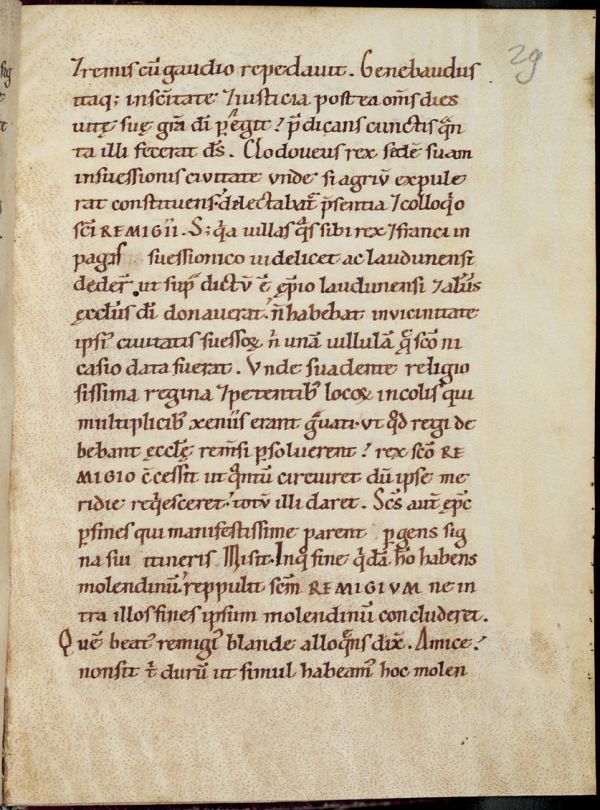 29
⁊remis cū gaudio repedauit. Genebaudus
itaq; in sc̄itate ⁊iusticia postea om̄s dies
uitę suę gr̄a dī pęgit? p̄dicans cunctis qn̄
ta illi fecerat ds̄. Clodoueus rex sedē suam
in suessionis ciuitate unde siagriū expule
rat constituens: delectabat᷑ p̄sentia ⁊colloq̊o
sc̄i REMIGII. S; q̇a uillas q̄s sibi rex ⁊franci in
pagis suessionico uidelicet ac laudunensi
deder̄. ut sup̄ dictū ē ęp̄io laudunensi ⁊aliis
ęcclīis dī donauerat. n̄ habebat in uicinitate
ipsi᷒ ciuitatis suessoꝝ n̄ unā uillulā q̄ sc̄o ni
casio data fuerat. Unde suadente religio
sissima regina ⁊petentib᷒ locoꝝ incolis qui
multiplicib᷒ xeniis erant g̃uati. ut q̊d regi de
bebant ęccłę rem̄si p̱soluerent? rex sc̄o RE
MIGIO c̄cessit ut q̃ntū circuiret dū ipse me
ridie req̇esceret. totū illi daret. Sc̄s aut̄ ęp̄c
p̱ fines qui manifestissime parent p̱gens sig
na sui itineris Misit. In q̊ fine q̇dā hō habens
molendinū. reppulit sc̄m REMIGIUM ne in
tra illos fines ipsum molendinū concluderet.
Quē beat᷒ remigi᷒ blande alloq̄ns dix̄. Amice?
non sit t̄ durū ut simul habeam᷒ hoc molen